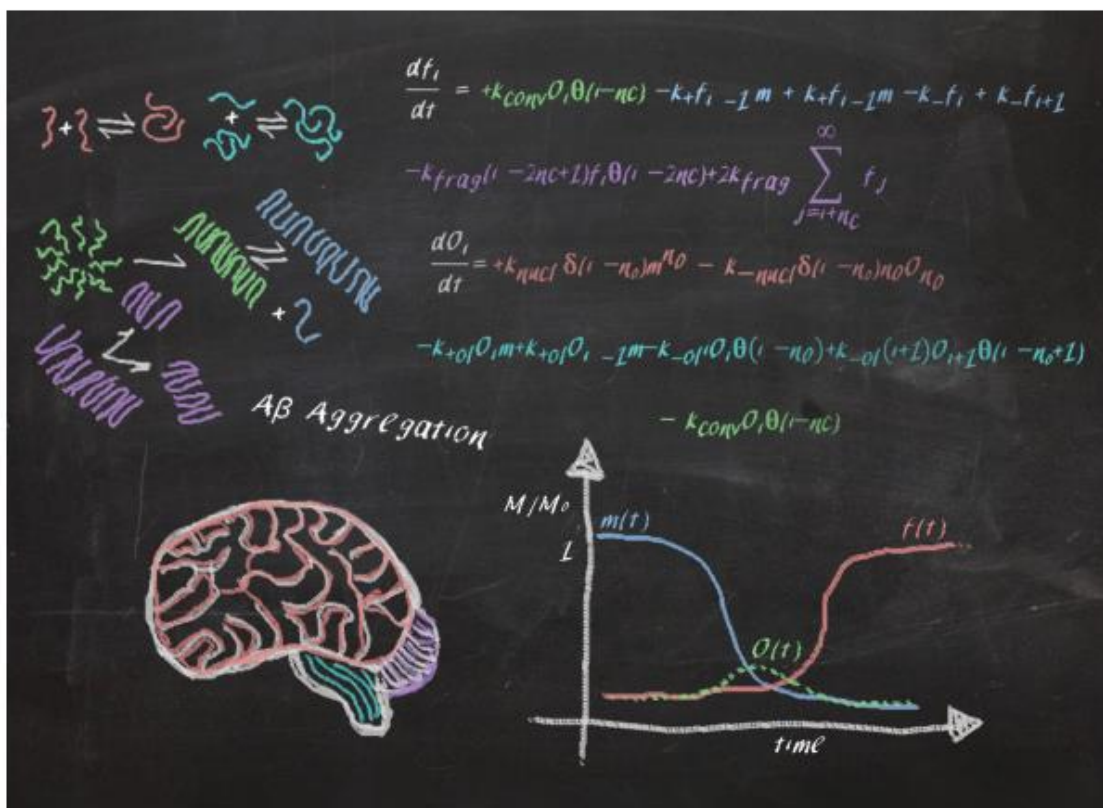 df₁/dt = +k_conv O₁θ(ι-nc) -k₊fι -1m + k₊fι-1m -k₋fι + k₋fι+1
-k_frag(ι - 2nc+1)fιθ(ι - 2nc)+2k_frag ∑_{j=ι+nc}^{∞} fj
dOι/dt = +k_nucl δ(ι -n₀)m^{n₀} - k_{-nucl}δ(ι -n₀)n₀O_{n₀}
-k_{+ol}Oιm+k_{+ol}Oι -1m-k_{-ol}ιOιθ(ι -n₀)+k_{-ol}(ι+1)Oι+1θ(ι -n₀+1)
- k_conv Oιθ(ι-nc)
Aβ Aggregation
M/M₀
1
m(t)
f(t)
O(t)
time